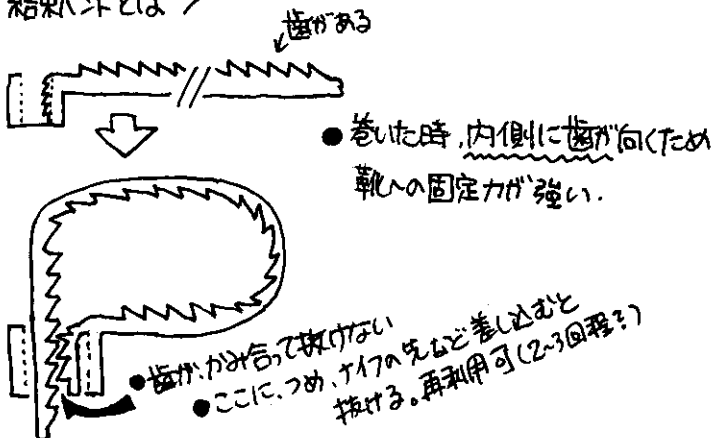 結束バンドとは?
歯がある
● 巻いた時、内側に歯が向くため
靴への固定力が強い.
● 歯が、かみ合って抜けない
● ここに、つめ、ナイフの先など差し込むと
抜ける。再利用可(2~3回程!)